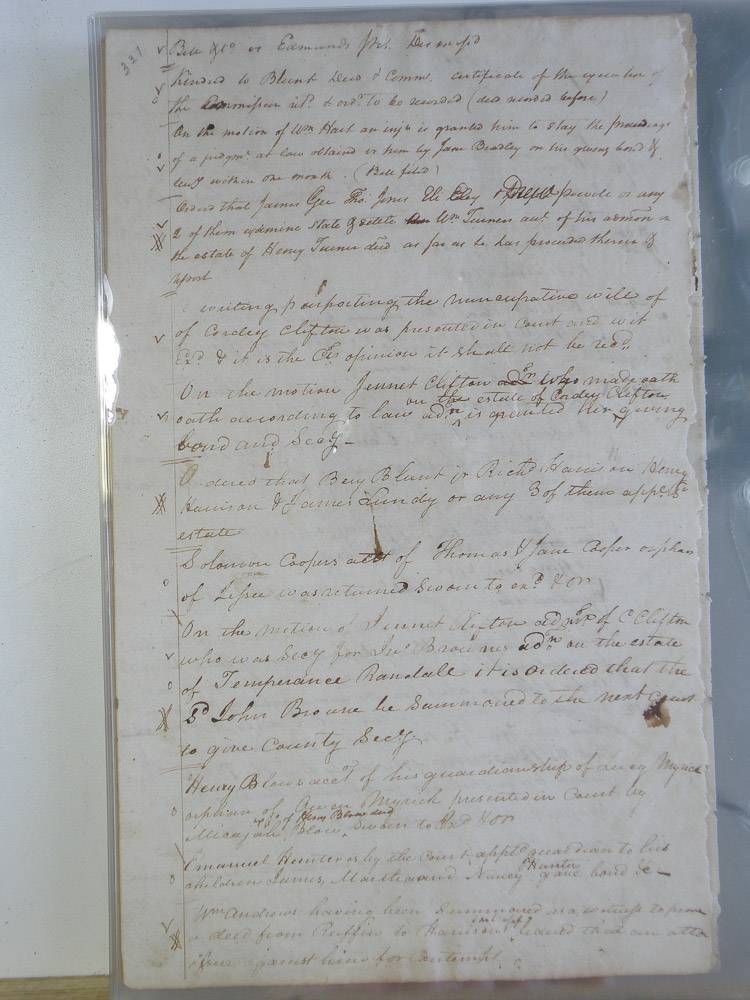 331
Bell &Co vs Edmunds Dismissed
Kindred to Blunt Deed & Comms. certificate of the execution of
the Commission retd. & ordd. to be recorded (deed recorded before)
On the motion of Wm Hart an injn is granted him to stay the proceedings
of a judgmt. at law obtained vs him by Jane Bradley on his giving bond &
secy within one month. (Bill filed)
Ordered that James Gee Thos. Jones or any
2 of them examine state & settle Wm Turners acct. of his admon on
the estate of Henry Turner decd as far as he has proceeded therein &
report
writing purporting the nuncupative will of
of Cordey Clifton was presented in Court and wit
Exd. & it is the Cts opinion it shall not be recd.
On the motion Jennet Clifton who made oath
on the estate of Cordey Clifton
oath according to law adn. is granted her giving
bond and Secy
Ordered that Benj Blunt jr Richd Harrison Henry
Harrison & James Lundy or any 3 of them appse sd
estate
Solomon Coopers acct of Thomas & Jane Cooper orphan
of was returned sworn to exd & OR
On the motion of Jennet Clifton admrx of C Clifton
who was Secy for Jno Brownes adn. on the estate
of Temperance Randall it is ordered that the
Sd John Browne be Summoned to the next Court
to give County Secy
Henry Blows acct of his guardianship of Myrick
orphan of Owen Myrick presented in Court by
of Henry Blow decd
Micajah Blow Sworn to Exd & OR
Emanuel Hunter is by the Court appd guardian to his
children James, Martha and Nancy Hunter gave bond &c
Wm Andrews having been Summoned as a witness to prove
a deed from Ruffin to Harrison ordered that an atta
issue against him for Contempt